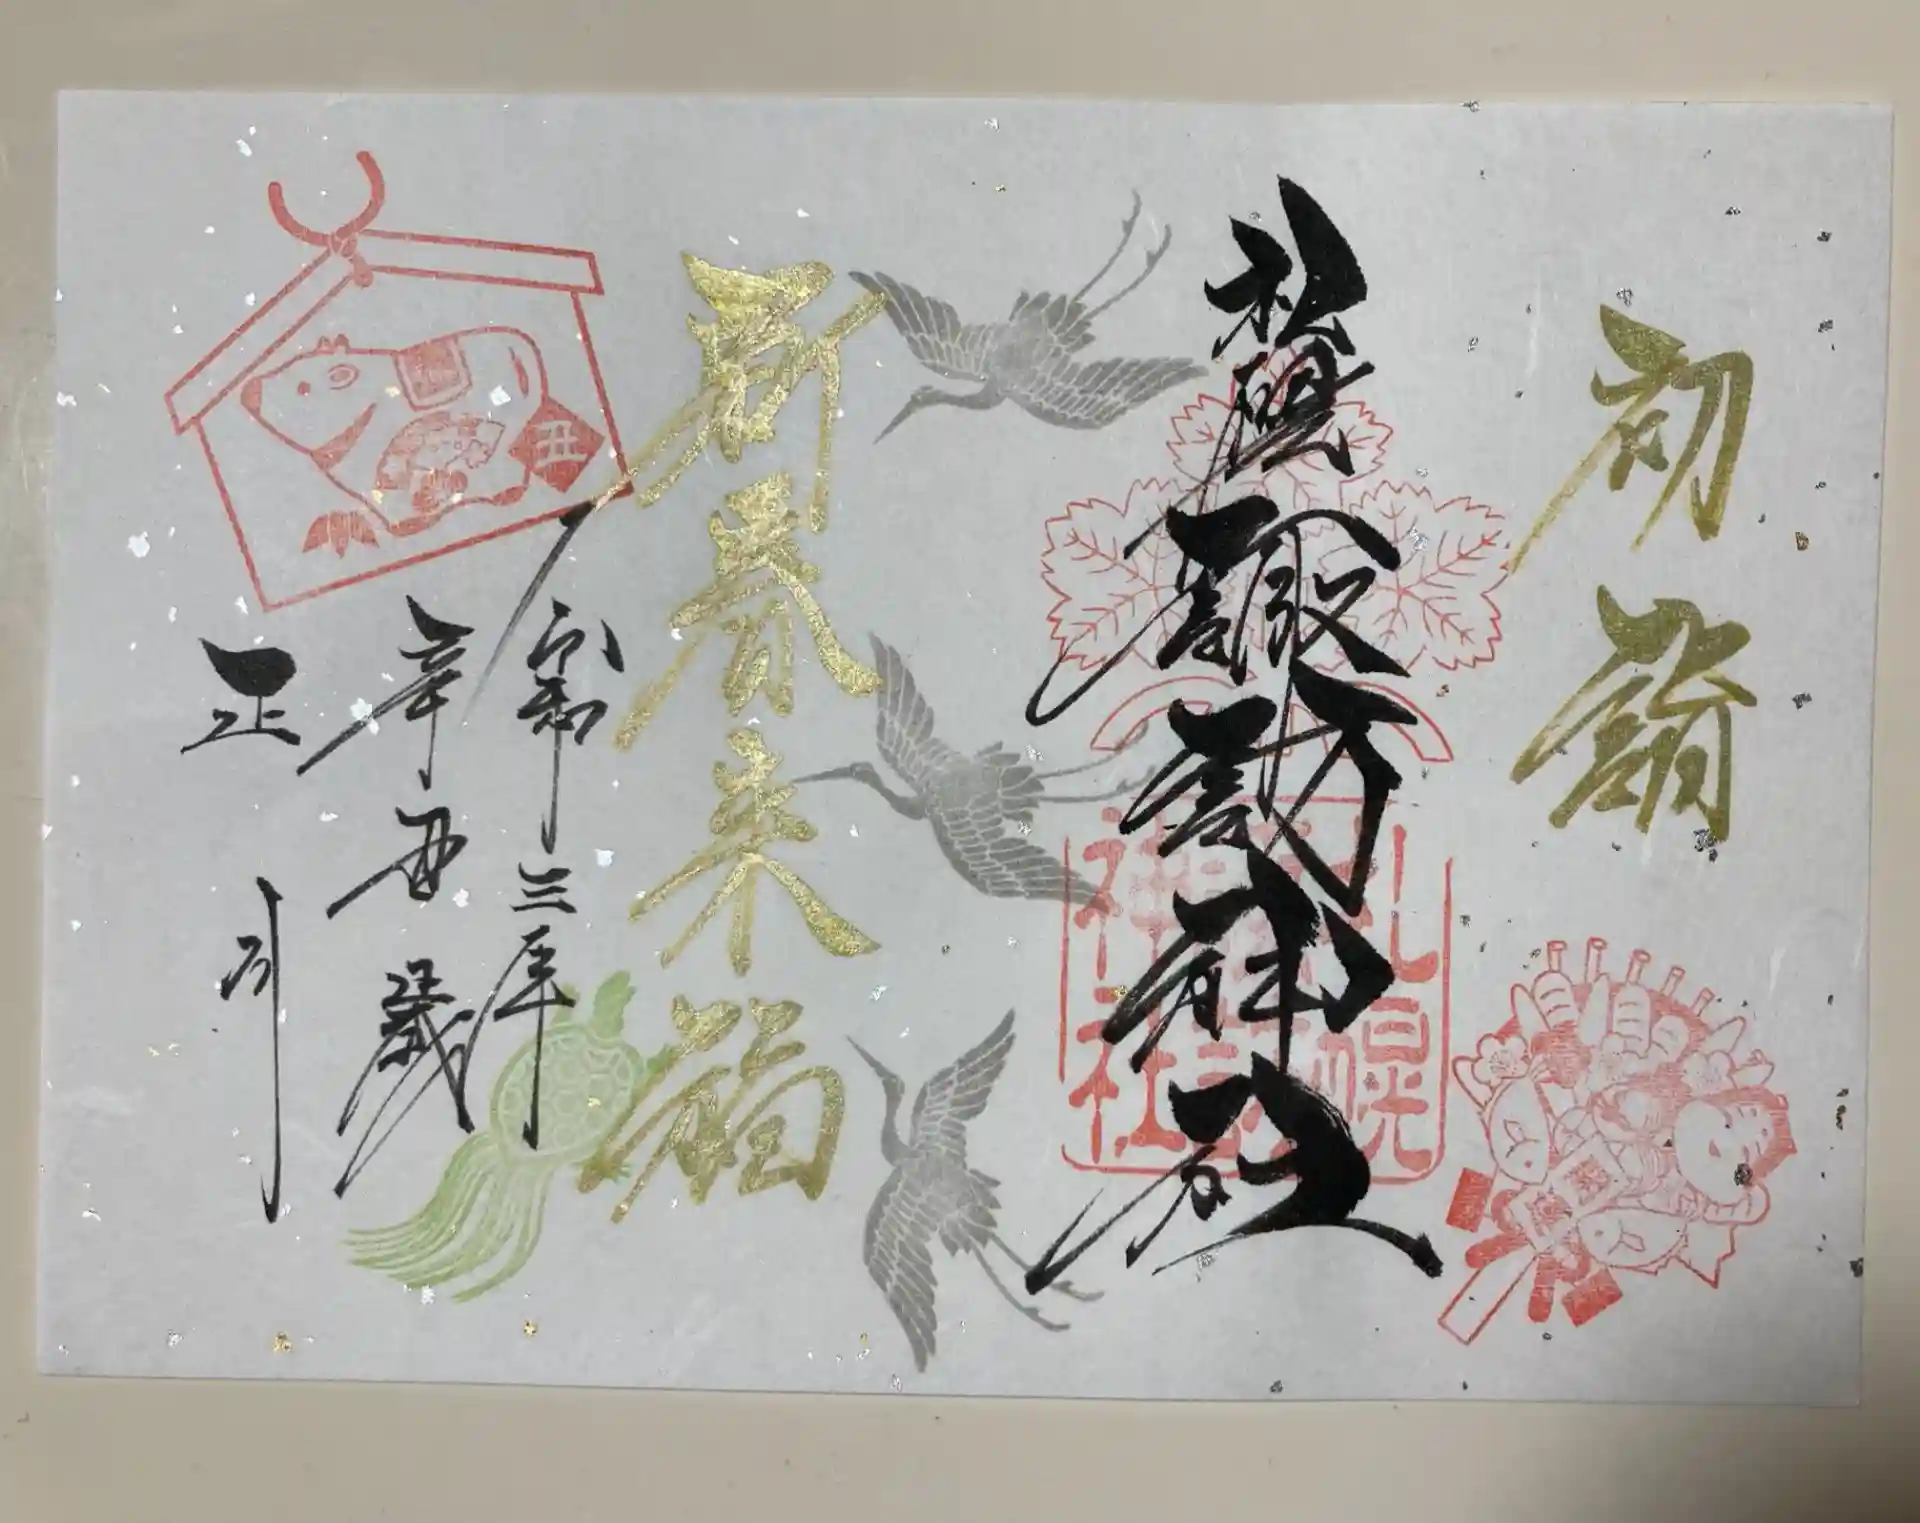 初詣
札幌諏訪神社
札幌諏訪神社
新春来福
令和三年
辛丑歳
正月
丑